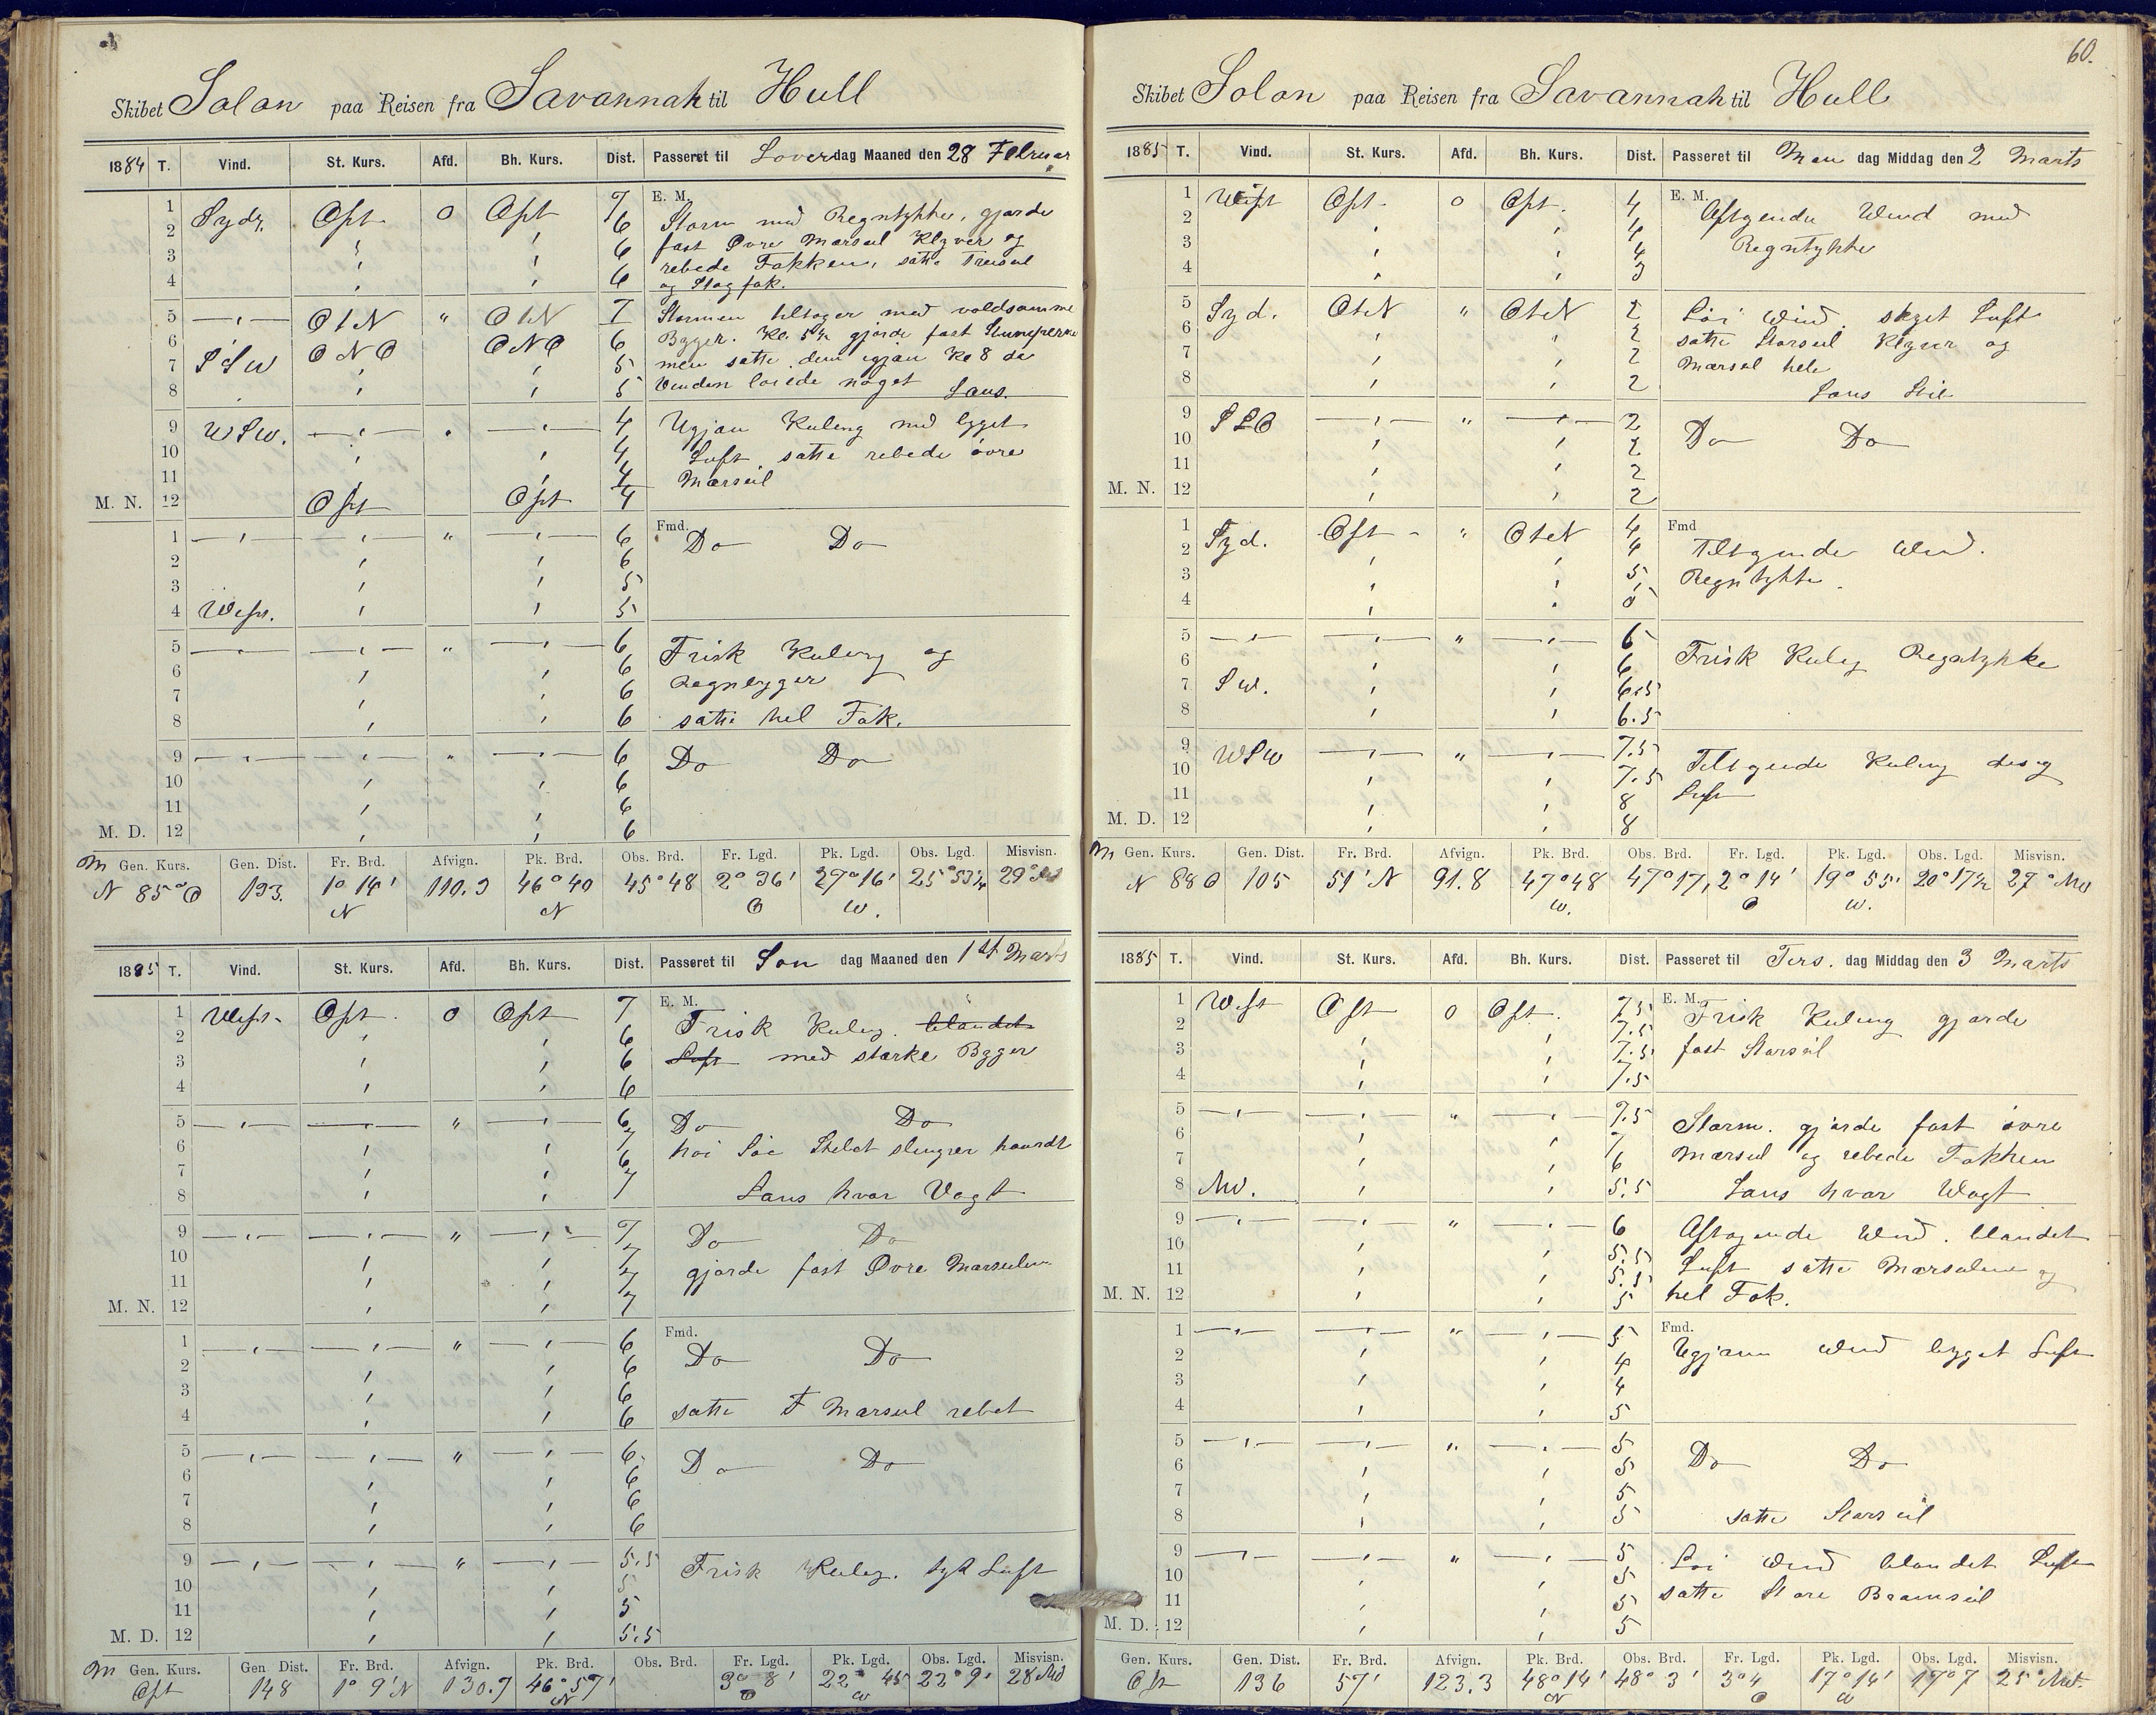 Skibet Solon paa Reisen fra Savannah til Hull
1884 T. Vind. St. Kurs. Afd. Bh. Kurs. Dist. Passeret til Loverdag Maaned den 28 Februar
E. M.
1 Sydr. Ost 0 Ost 7 Storm med Regntykke, gjorde
2 6 fast Øvre Mærseil Klyver og
3 6 rebede Fokken, satte Treiseil
4 6 og Stagfok.
5 OtN " OtN 7 Stormen tiltager med voldsomme
6 ONO ONO 6 Byger. Kl. 5½ gjorde fast
7 SSW 5 men satte dem igjæn Kl 8 da
8 5 Vinden löiede noget Lans.
9 WSW. 4 Ugjæn Kuling med bygget
10 4 Luft satte rebede övre
11 4 Mærseil
M. N. 12 Ost Ost 4
Fmd.
1 " 6 Do Do
2 6
3 5
4 West. 5
5 " 6 Frisk Kuling og
6 6 Regnbyger
7 6
8 6 satte hel Fok.
9 " 6 Do Do
10 6
11 6
M. D. 12 6
M Gen. Kurs. Gen. Dist. Fr. Brd. Afvign. Pk. Brd. Obs. Brd. Fr. Lgd. Pk. Lgd. Obs. Lgd. Misvisn.
N 85° O 133. 1° 14' 110.3 46° 40 45° 48 2° 36' 27° 16' 25° 53½ 29° NW
N N O W.
1885 T. Vind. St. Kurs. Afd. Bh. Kurs. Dist. Passeret til Søn dag Maaned den 1st Marts
E. M.
1 West Ost 0 Ost 7 Frisk Kuling. blandet
2 6
3 6 Luft med stærke Byger
4 6
5 " 6 Do Do
6 7 höi Söe Skibet slingrer haardt
7 6
8 7 Lans hvær Vagt
9 " 7 Do Do
10 7
11 7 gjorde fast Øvre Mærseilen
M. N. 12 7
Fmd.
1 " 6 Do Do
2 6
3 6
4 6 satte F Mærseil rebet
5 " 6 Do Do
6 6
7 6
8 6
9 " 5.5 Frisk Kuling. tyk Luft
10 5
11 5
M. D. 12 5.5
M Gen. Kurs. Gen. Dist. Fr. Brd. Afvign. Pk. Brd. Obs. Brd. Fr. Lgd. Pk. Lgd. Obs. Lgd. Misvisn.
Ost 148 1° 9' N 130.7 46° 57' 3° 8' 22° 45 23° 9' 28 NW
N O W
60.
Skibet Solon paa Reisen fra Savannah til Hull
1885 T. Vind. St. Kurs. Afd. Bh. Kurs. Dist. Passeret til Man dag Middag den 2 Marts
E. M.
1 West Ost 0 Ost. 4 Aftgende Wind med
2 4
3 4 Regntykke
4 3
5 Syd. OtN " OtN 2 Löi Wind skyet Luft
6 2 satte Storseil Klyver og
7 2 Mærseil hele
8 2 Lans Stil
9 SSO " 2 Do Do
10 2
11 2
M. N. 12 2
Fmd
1 Syd. Ost " OtN 4 Tiltgende Wind.
2 4
3 5 Regntykke.
4 5
5 " 6 Frisk Kuling Regntykke
6 6
7 SW. 6.5
8 6.5
9 WSW " 7.5 Tiltgende Kuling disig
10 7.5
11 8 Luft
M. D. 12 8
M Gen. Kurs. Gen. Dist. Fr. Brd. Afvign. Pk. Brd. Obs. Brd. Fr. Lgd. Pk. Lgd. Obs. Lgd. Misvisn.
N 88 O 105 51' N 91.8 47° 48 47° 17, 2° 14' 19° 55' 20° 17½ 27° NW
W. O W.
1885 T. Vind. St. Kurs. Afd. Bh. Kurs. Dist. Passeret til Tirs. dag Middag den 3 Marts
E. M.
1 West Ost 0 Ost. 7.5 Frisk Kuling gjorde
2 7.5
3 7.5 fast Storseil
4 7.5
5 " 7.5 Storm. gjorde fast övre
6 7
7 6 Mærseil og rebede Fokken
8 NW. 5.5 Lans hvær Wagt
9 " 6 Aftagende Wind. blandet
10 5.5 Luft satte Mærseilene og
11 5.5
M. N. 12 5 hel Fok.
Fmd.
1 " 5 Ugjæn Wind bygget Luft
2 4
3 4
4 5
5 " 5 Do Do
6 5
7 5
8 5 satte Storseil
9 " 5 Löi Wind blandet Luft
10 5
11 5 satte Store Bramseil
M. D. 12 5
Gen. Kurs. Gen. Dist. Fr. Brd. Afvign. Pk. Brd. Obs. Brd. Fr. Lgd. Pk. Lgd. Obs. Lgd. Misvisn.
Ost 136 57' 123.3 48° 14' 48° 3' 3° 4 17° 14' 17° 7 25° NW.
N O W